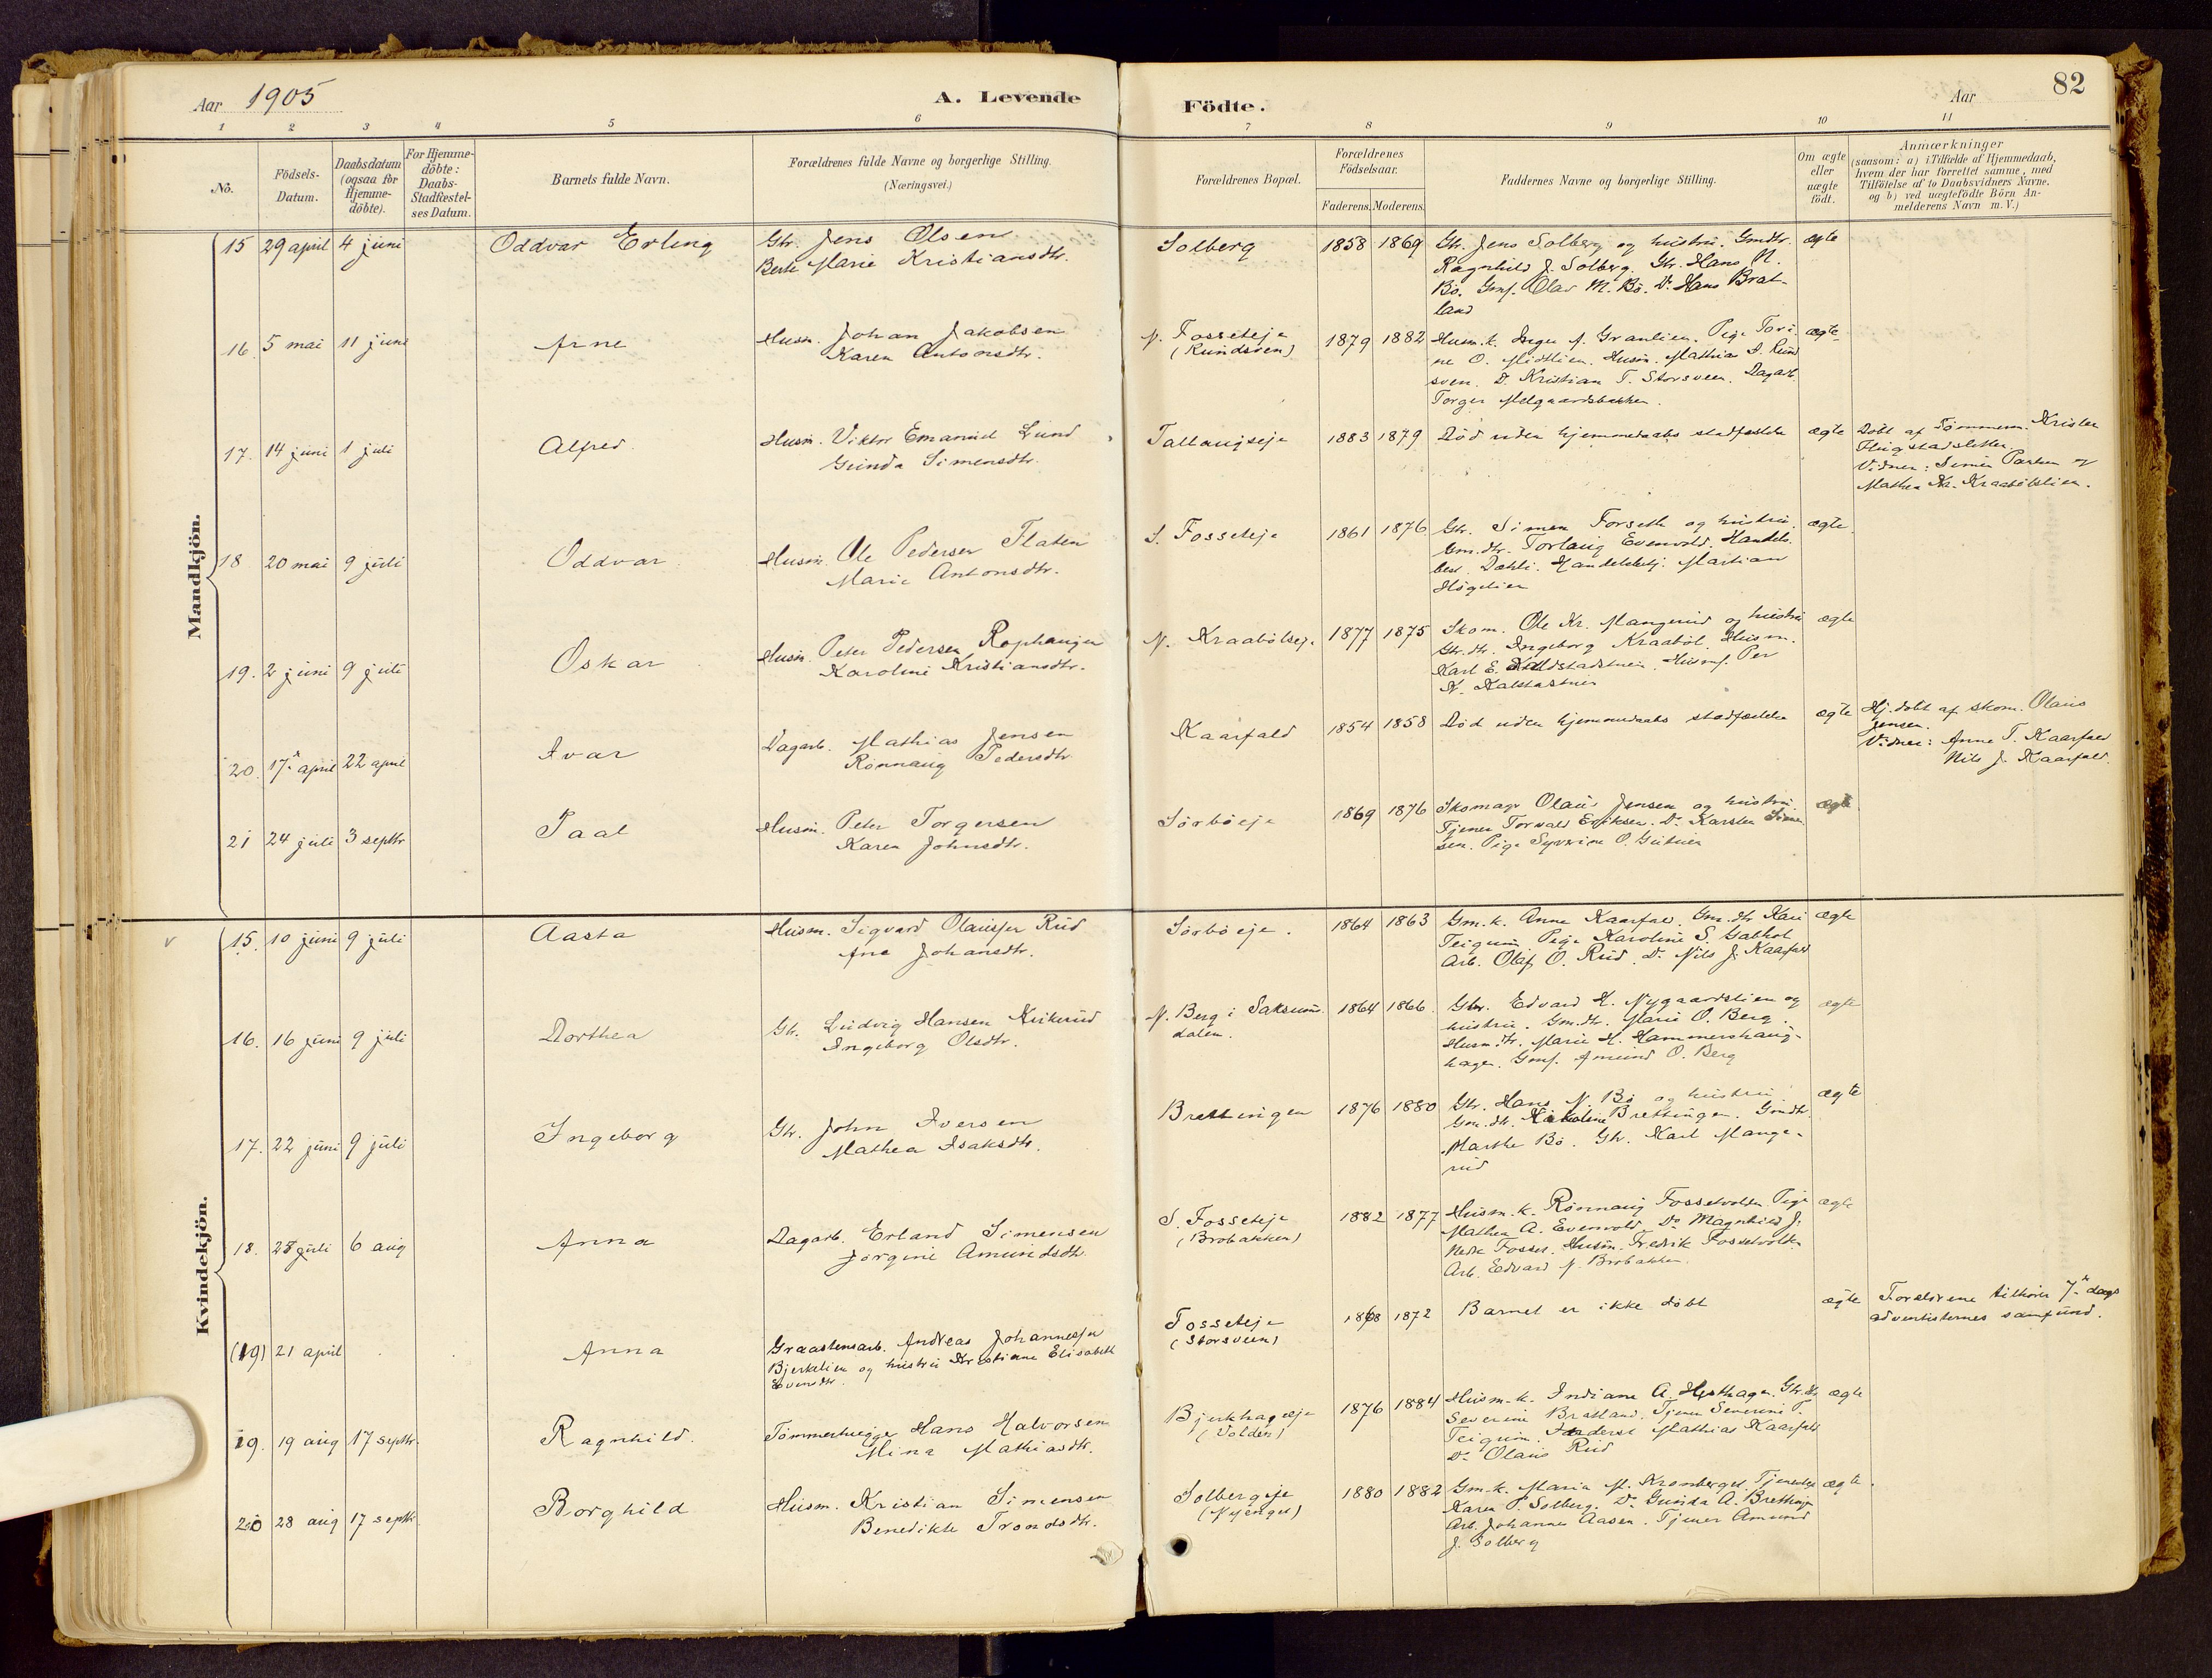 Aar 1905
A. Levende
Födte.
Aar
82
1 2 3 4 5 6 7 8 9 10 11
No.
Födsels-
Datum.
Daabsdatum
(ogsaa for
Hjemme-
döbte).
For Hjemme-
döbte:
Daabs-
Stadfæstel-
ses Datum.
Barnets fulde Navn.
Forældrenes fulde Navne og borgerlige Stilling.
(Næringsvei.)
Forældrenes Bopæl.
Forældrenes
Födselsaar.
Faderens. Moderens.
Faddernes Navne og borgerlige Stilling.
Om ægte
eller
uægte
födt.
Anmærkninger
(saasom: a) i Tilfælde af Hjemmedaab,
hvem der har forrettet samme, med
Tilföielse af to Daabsvidners Navne,
og b) ved uægtefödte Börn An-
melderens Navn m. V.)
Mandkjön.
15 29 april 4 juni Oddvar Erling
Gbr. Jens Olsen
Berte Marie Kristiansdtr.
Solberg 1858 1869
Gbr. Jens Solberg og hustru. Gmdtr.
Ragnhild J. Solberg. Gbr. Hans N.
Bö. Gmf. Olav M. Bö. Do Hans Brat-
land
ægte
16. 5 mai 11 juni Arne
Husm. Johan Jakobsen
Karen Antonsdtr.
N. Fosseteje
(Rundsveen)
1879 1882
Husm.k. Inger A. Granlien. Pige Tori-
ne O. Midtlien. Husm. Mathias S. Rund
sveen. D. Kristian T. Storsveen. Dagarb.
Torger Melgaardsbakken.
ægte
17. 14 juni 1 juli Alfred
Husm. Viktor Emanuel Lund
Gunda Simensdtr.
Tallaugseje 1883 1879
Död uden hjemmedaabs stadfæstelse
ægte
Döbt af Tömmerm. Kristen
Flugstadsletten
Vidner: Simen Parken og
Mathea Kr. Kraabölslien.
18 20 mai 9 juli Oddvar
Husm. Ole Pedersen Flaten
Marie Antonsdtr.
S. Fosseteje 1861 1876
Gbr. Simen Forseth og hustru.
Gm.dtr. Torlaug Evenvold. Handels
best. Dæhli. Handelsbetj. Martian
Högelien
ægte.
19. 2 juni 9 juli Oskar
Husm. Peter Pedersen Rophaugen
Karoline Kristiansdtr.
N. Kraabölsej. 1877 1875
Skom. Ole Kr. Mangerud og hustru
Gbr.dtr. Ingeborg Kraaböl. Husm.
Karl E. Kalstadstuen. Husmf. Per
K. Kalstadstuen
ægte
20. 17de april 22 april Ivar
Dagarb. Mathias Jensen
Rönnaug Pedersdtr.
Kaarfald 1854 1858
Död uden hjemmedaabs stadfæstelse
ægte
Hj.döbt af skom. Olaus
Jensen.
Vidner: Anne T. Kaarfald
Nils J. Kaarfald.
21 24 juli 3 septbr Paal
Husm. Peter Torgersen
Karen Johnsdtr.
Sörböeje 1869 1876
Skomagr Olaus Jensen og hustru.
Tjener Torvald Eriksen. Do Karsten Simen
sen. Pige Syverine O. Gutuen
ægte
Kvindekjön.
15. 10 juni 9 juli Aasta
Husm. Sigvard Olaussen Rud
Ane Johansdtr.
Sörböeje. 1864 1863
Gm.k. Anne Kaarfald. Gm.dtr Kari
Teigum. Pige Karoline S. Gabhol
Arb. Olaf O. Rud. Do Nils J. Kaarfald
ægte
16. 16 juni 9 juli Dorthea
Gbr. Ludvig Hansen Kvikerud
Ingeborg Olsdtr.
N. Berg i Saksum-
dalen.
1864 1866
Gbr. Edvard H. Nygaardslien og
hustru. Gm.dtr. Marie O. Berg.
Husm.dtr. Marie H. Hammershaug-
hagen. Gmf. Amund O. Berg
ægte
17. 22 juni 9 juli Ingeborg
Gbr. John Iversen
Mathea Isaksdtr.
Brettingen 1876 1880
Gbr. Hans N. Bö og hustru
Gm.dtr. Nikoline Brettingen. Gmdtr.
Marthe Bö. Gbr. Karl Mange-
rud
ægte
18. 23 juli 6 aug Anna
Dagarb. Erland Simensen
Jörgine Amundsdtr.
S. Fosseteje
(Brobakken)
1882 1877
Husm.k. Rönnaug Fossetvolden Pige
Mathea A. Evenvold. Do Magnhild J.
Nedre Fosset. Husm. Fredrik Fossetvolden
Arb. Edvard N. Brobakken.
ægte
(19) 21 april Anna
Graastensarb. Andreas Johannessen
Bjerkelien og hustru Kristiane Elisabeth
Evensdtr.
Fosseteje
(Storsveen)
1868 1872
Barnet er ikke döbt
ægte
Forældrene tilhörer 7de dags
adventisternes samfund.
19. 19 aug 17 septbr. Ragnhild.
Tömmerhugger Hans Halvorsen
Mina Mathiasdtr.
Bjerkhageeje
(Volden)
1876 1884
Husm.k. Indiane A. Hesthagen. Gbr.dtr
Severine Bratland. Tjener Severine P.
Teigum. Inderst Mathias Kaarfald
Do Olaus Rud
ægte
20 28 aug 17 septbr Borghild
Husm. Kristian Simensen
Benedikte Trondsdtr.
Solbergeje
(Nyenget)
1880 1882
Gm.k. Maria M. Kromberget. Tjenestep.
Karen P. Solberg. Do Gunda A. Brettingen
Arb. Johannes Aasen. Tjener Amund
J. Solberg
ægte.